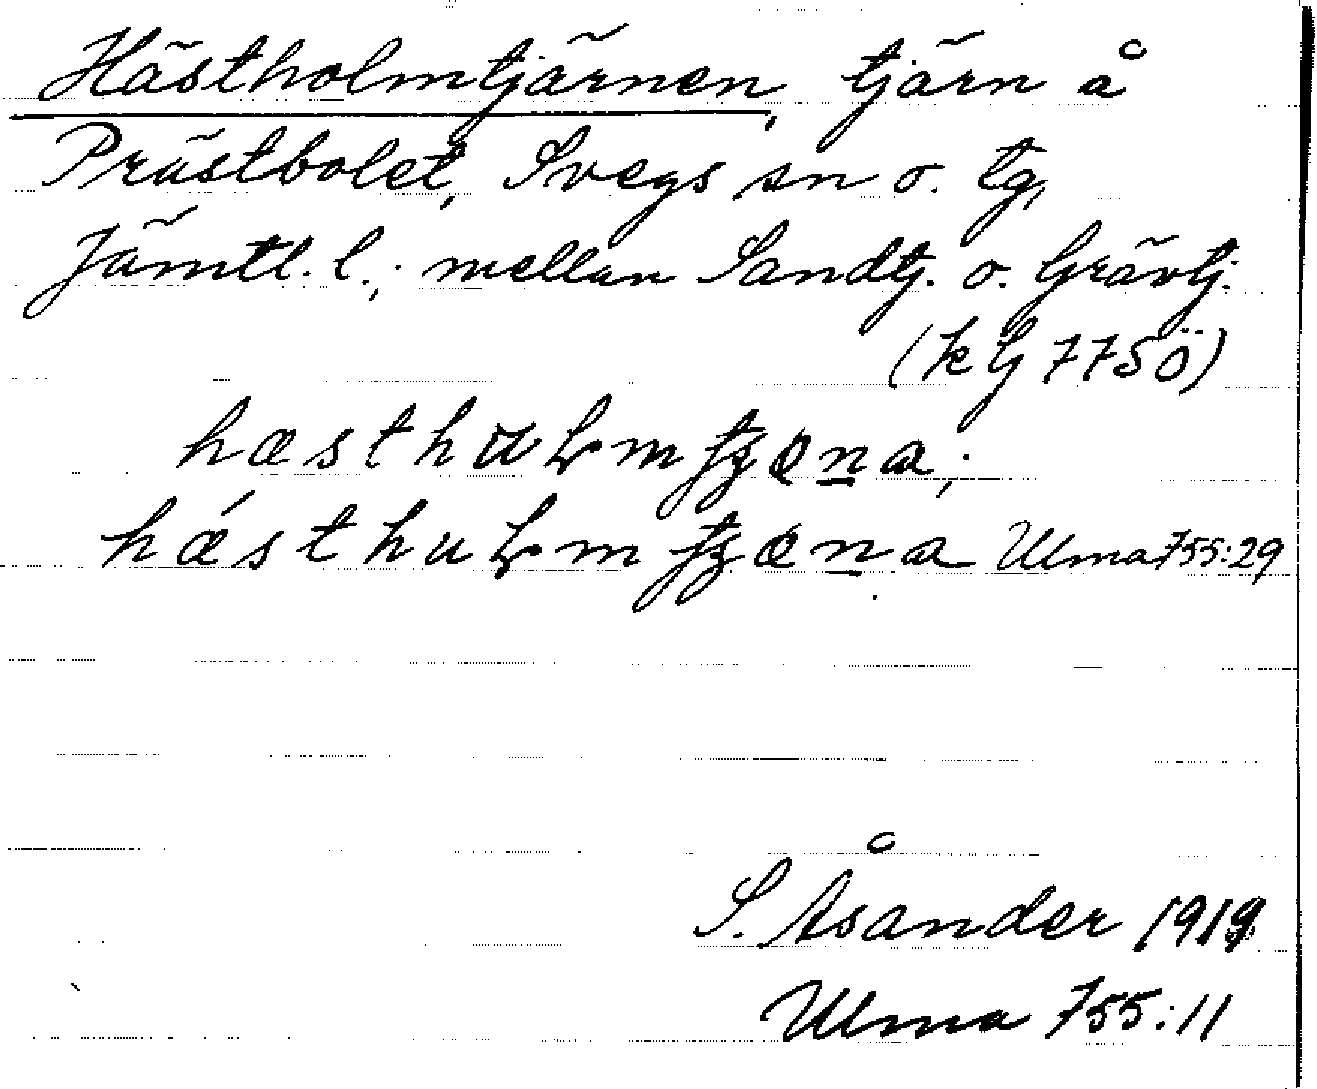 Hästholmtjärnen, tjärn å
Prästbolet, Svegs sn o. tg,
Jämtl. l.; mellan Sandtj. o. Grävtj.
(k G 7750)
hæsthuⱡm
hǽsthuⱡm Ulma 755:29
S. Åsander 1919
Ulma 755:11